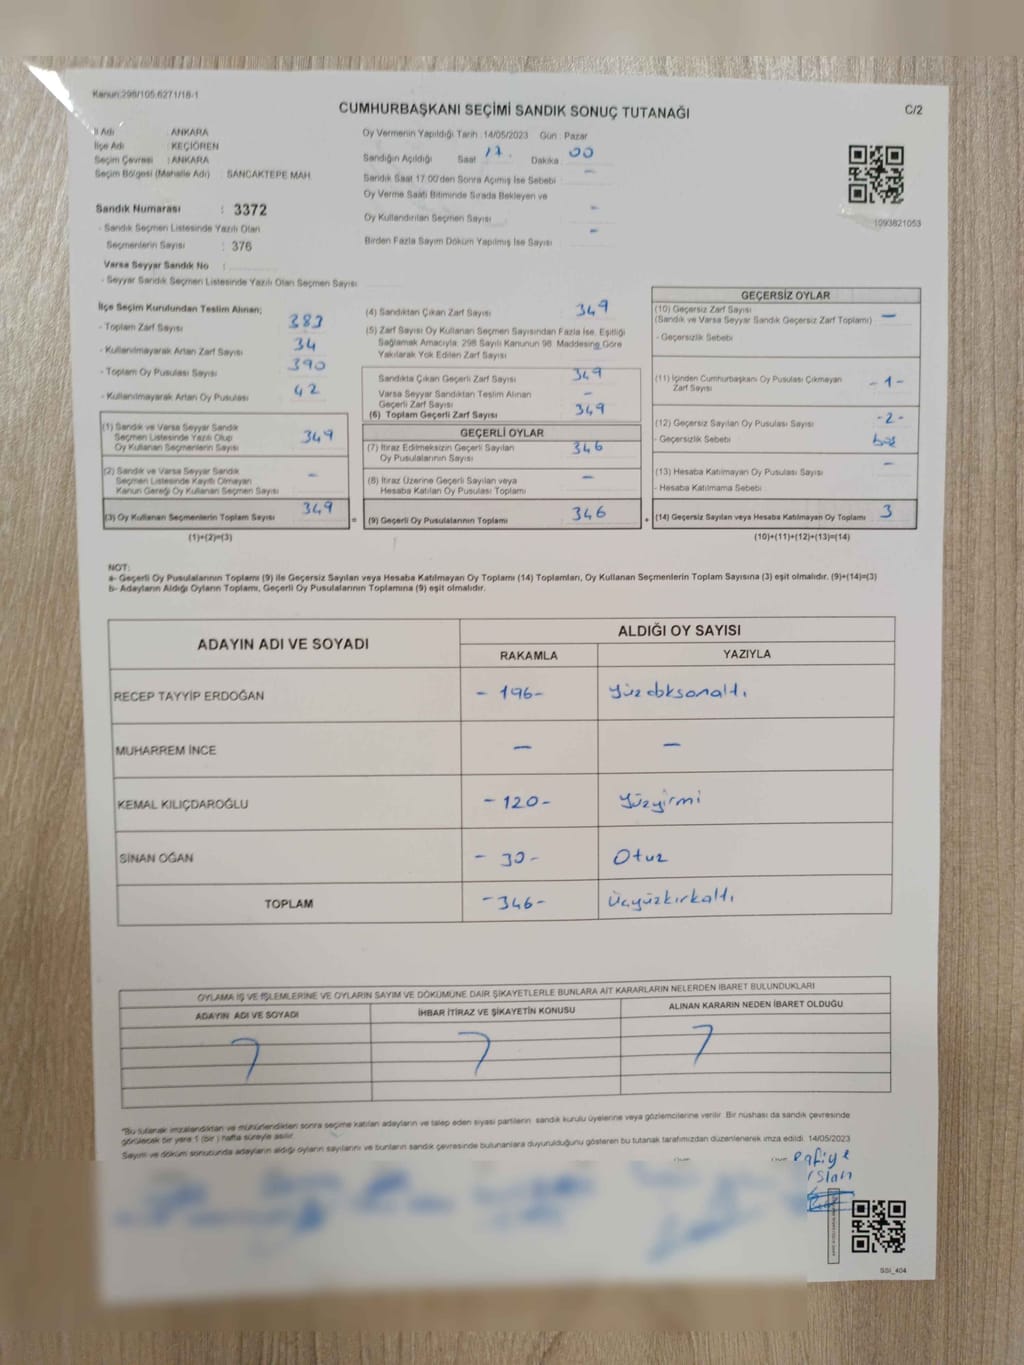 Kanun:298/105,6271/18-1
CUMHURBAŞKANI SEÇİMİ SANDIK SONUÇ TUTANAĞI
C/2
İl Adı : ANKARA
İlçe Adı : KEÇİÖREN
Seçim Çevresi : ANKARA
Seçim Bölgesi (Mahalle Adı) : SANCAKTEPE MAH.
Sandık Numarası : 3372
- Sandık Seçmen Listesinde Yazılı Olan
Seçmenlerin Sayısı : 376
Varsa Seyyar Sandık No :
- Seyyar Sandık Seçmen Listesinde Yazılı Olan Seçmen Sayısı
Oy Vermenin Yapıldığı Tarih : 14/05/2023 Gün : Pazar
Sandığın Açıldığı Saat 17. Dakika 00
Sandık Saat 17.00'den Sonra Açılmış İse Sebebi -
Oy Verme Saati Bitiminde Sırada Bekleyen ve
Oy Kullandırılan Seçmen Sayısı -
Birden Fazla Sayım Döküm Yapılmış İse Sayısı -
1093821053
İlçe Seçim Kurulundan Teslim Alınan;
- Toplam Zarf Sayısı 383
- Kullanılmayarak Artan Zarf Sayısı 34
- Toplam Oy Pusulası Sayısı 390
- Kullanılmayarak Artan Oy Pusulası 42
(1) Sandık ve Varsa Seyyar Sandık
Seçmen Listesinde Yazılı Olup
Oy Kullanan Seçmenlerin Sayısı 349
(2) Sandık ve Varsa Seyyar Sandık
Seçmen Listesinde Kayıtlı Olmayan
Kanun Gereği Oy Kullanan Seçmen Sayısı -
(3) Oy Kullanan Seçmenlerin Toplam Sayısı 349
(1)+(2)=(3)
(4) Sandıktan Çıkan Zarf Sayısı 349
(5) Zarf Sayısı Oy Kullanan Seçmen Sayısından Fazla İse, Eşitliği
Sağlamak Amacıyla; 298 Sayılı Kanunun 98. Maddesine Göre
Yakılarak Yok Edilen Zarf Sayısı
Sandıkta Çıkan Geçerli Zarf Sayısı 349
Varsa Seyyar Sandıktan Teslim Alınan
Geçerli Zarf Sayısı -
(6) Toplam Geçerli Zarf Sayısı 349
GEÇERLİ OYLAR
(7) İtiraz Edilmeksizin Geçerli Sayılan
Oy Pusulalarının Sayısı 346
(8) İtiraz Üzerine Geçerli Sayılan veya
Hesaba Katılan Oy Pusulası Toplamı -
= (9) Geçerli Oy Pusulalarının Toplamı 346
GEÇERSİZ OYLAR
(10) Geçersiz Zarf Sayısı
(Sandık ve Varsa Seyyar Sandık Geçersiz Zarf Toplamı) -
- Geçersizlik Sebebi
(11) İçinden Cumhurbaşkanı Oy Pusulası Çıkmayan
Zarf Sayısı -1-
(12) Geçersiz Sayılan Oy Pusulası Sayısı -2-
- Geçersizlik Sebebi boş
(13) Hesaba Katılmayan Oy Pusulası Sayısı -
- Hesaba Katılmama Sebebi :
+ (14) Geçersiz Sayılan veya Hesaba Katılmayan Oy Toplamı 3
(10)+(11)+(12)+(13)=(14)
NOT:
a- Geçerli Oy Pusulalarının Toplamı (9) ile Geçersiz Sayılan veya Hesaba Katılmayan Oy Toplamı (14) Toplamları, Oy Kullanan Seçmenlerin Toplam Sayısına (3) eşit olmalıdır. (9)+(14)=(3)
b- Adayların Aldığı Oyların Toplamı, Geçerli Oy Pusulalarının Toplamına (9) eşit olmalıdır.
ADAYIN ADI VE SOYADI
ALDIĞI OY SAYISI
RAKAMLA YAZIYLA
RECEP TAYYİP ERDOĞAN - 196 - Yüzdoksanaltı
MUHARREM İNCE - -
KEMAL KILIÇDAROĞLU - 120 - Yüzyirmi
SİNAN OĞAN - 30 - Otuz
TOPLAM - 346 - Üçyüzkırkaltı
OYLAMA İŞ VE İŞLEMLERİNE VE OYLARIN SAYIM VE DÖKÜMÜNE DAİR ŞİKAYETLERLE BUNLARA AİT KARARLARIN NELERDEN İBARET BULUNDUKLARI
ADAYIN ADI VE SOYADI İHBAR İTİRAZ VE ŞİKAYETİN KONUSU ALINAN KARARIN NEDEN İBARET OLDUĞU
"Bu tutanak imzalandıktan ve mühürlendikten sonra seçime katılan adayların ve talep eden siyasi partilerin sandık kurulu üyelerine veya gözlemcilerine verilir. Bir nüshası da sandık çevresinde
görülecek bir yere 1 ( bir ) hafta süreyle asılır.
Sayım ve döküm sonucunda adayların aldığı oyların sayılarını ve bunların sandık çevresinde bulunanlara duyurulduğunu gösteren bu tutanak tarafımızdan düzenlenerek imza edildi. 14/05/2023
SSI_404